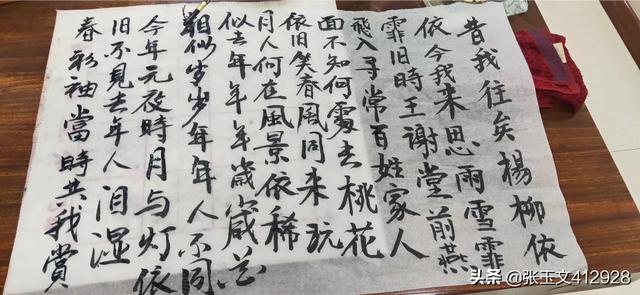 昔我往矣楊柳依
依今我来思雨雪霏
霏旧時王谢堂前燕
飛入寻常百姓家人
面不知何處去桃花
依旧笑春風同来玩
月人何在風景依稀
似去年年年歲歲花
相似岁岁年年人不同
今年元夜時月与灯依
旧不見去年人泪湿
春衫袖當時共我賞
头条 @张玉文412928